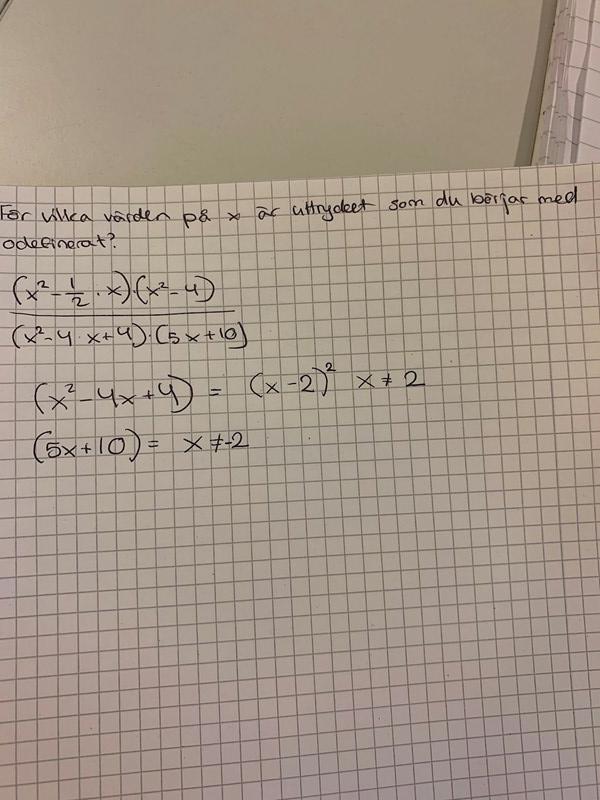 För vilka värden på x är uttrycket som du börjar med
odefinerat?
(x² - 1/2 · x)·(x² - 4)
(x² - 4·x + 4)·(5x + 10)
(x² - 4x + 4) = (x - 2)² x ≠ 2
(5x + 10) = x ≠ -2